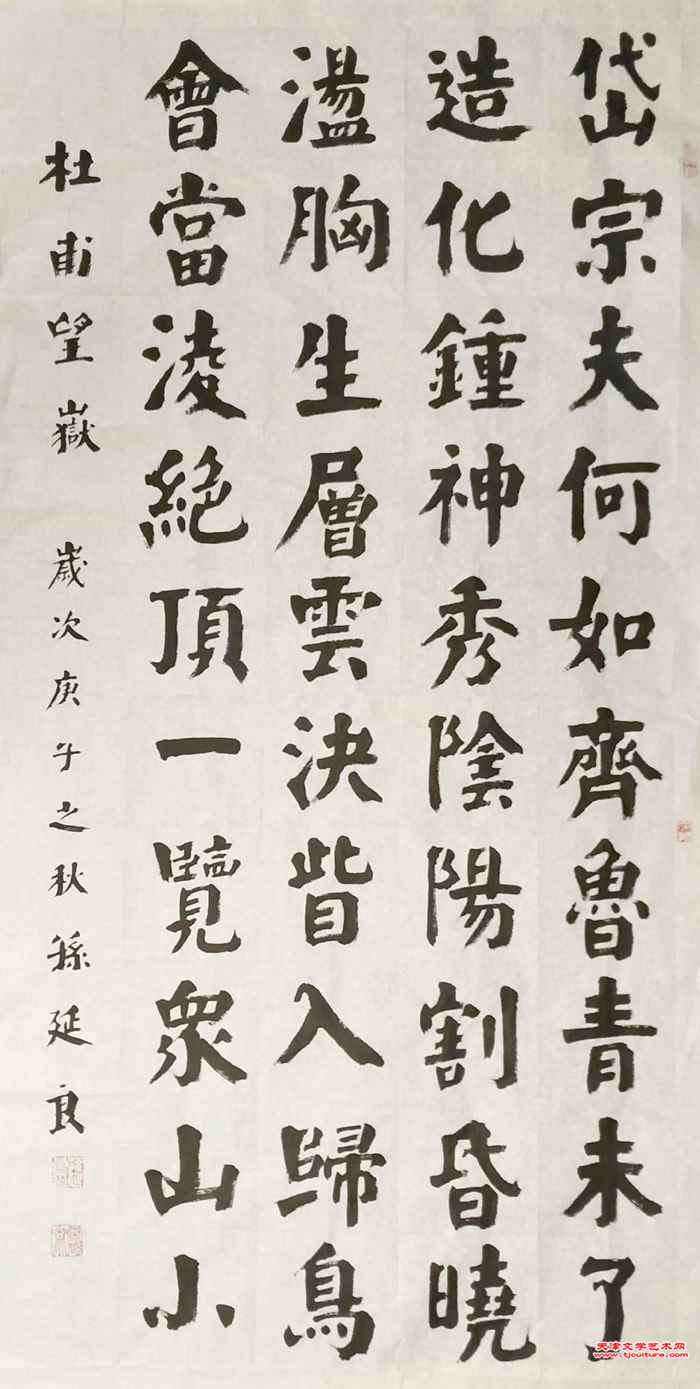 岱宗夫何如齊魯青未了
造化鍾神秀陰陽割昏曉
盪胸生層雲決眥入歸鳥
會當淩絕頂一覽眾山小
杜甫望嶽 歲次庚子之秋孫延良
天津文学艺术网
www.tjculture.com